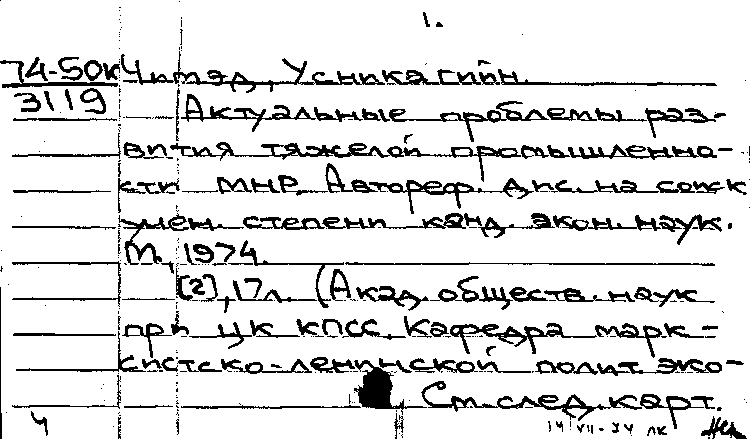 1.
74-50к Читяд, Усникагийн.
3119 Актуальные проблемы раз-
вития тяжелой промышленно-
сти МНР. Автореф. дис. на соиск
учен. степени канд. экон. наук.
М., 1974.
[2], 17 л. (Акад. обществ. наук
при ЦК КПСС. Кафедра марк-
систско-ленинской полит. эко-
См. след. карт.
Ч 14 VII-74 лк